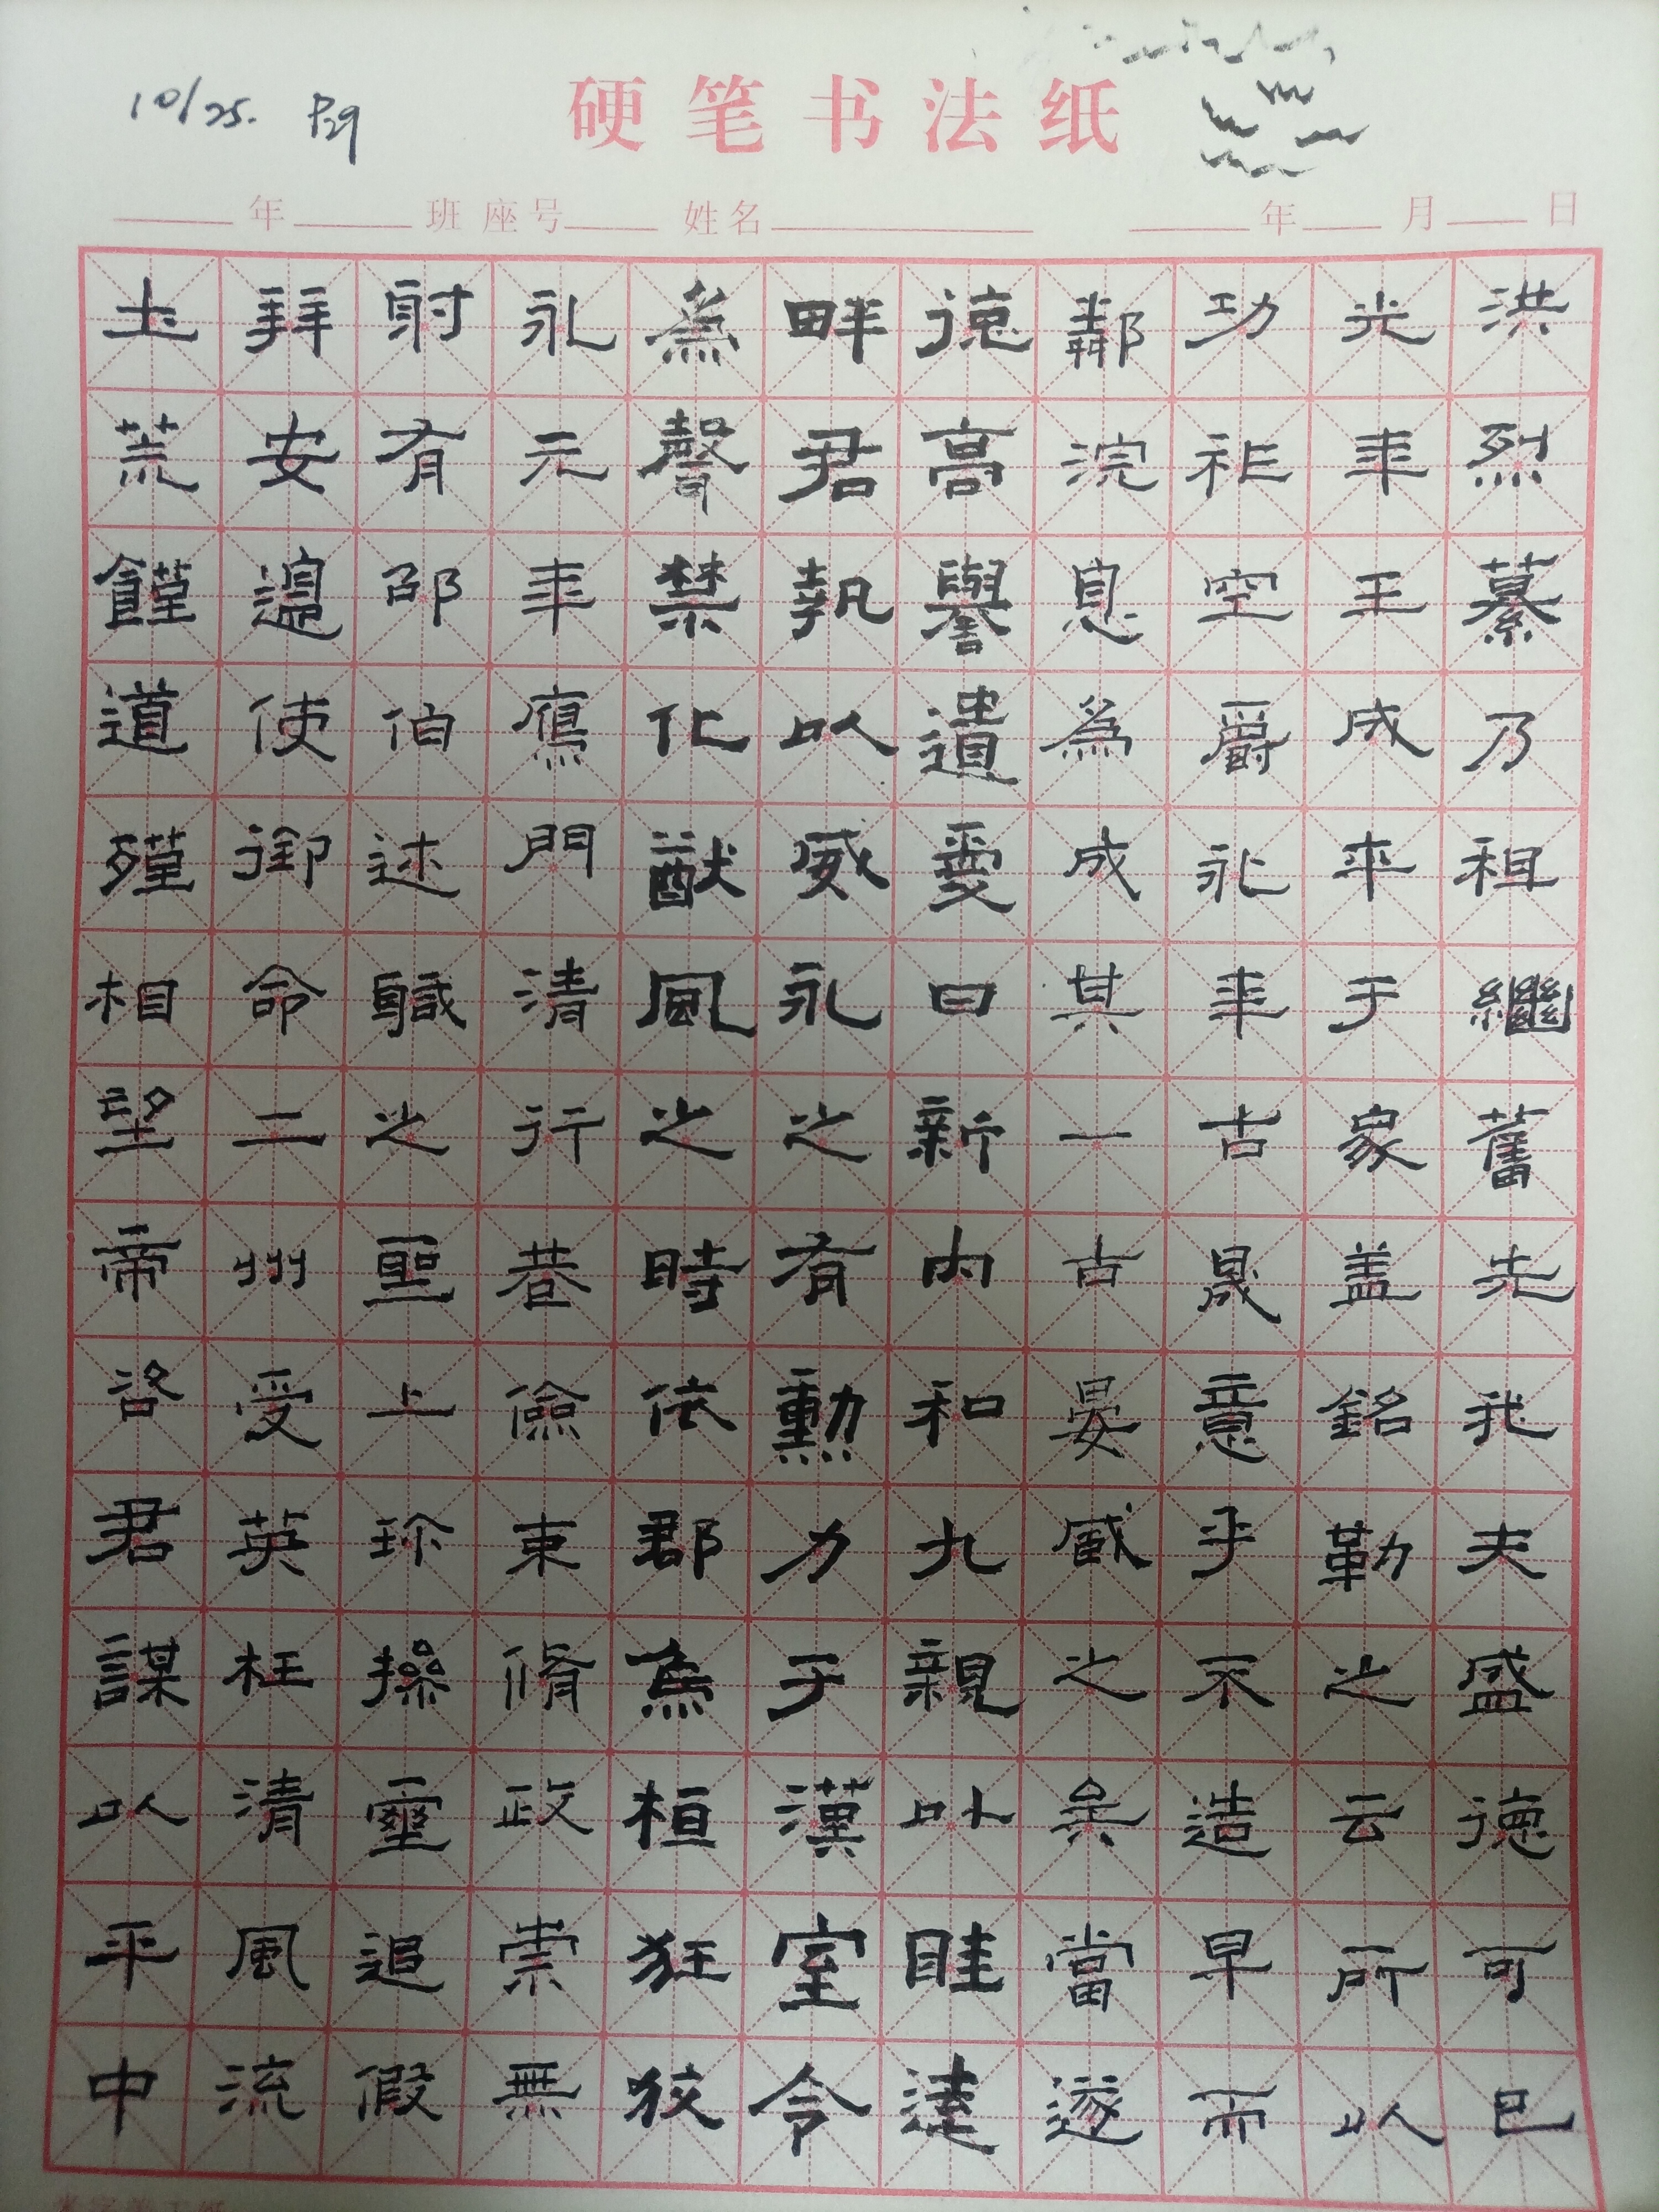 10/25. P29
硬笔书法纸
年 班 座号 姓名 年 月 日
洪烈纂乃祖繼舊先我夫盛德可已
光年王成平于象盖銘勒之云所以
功祚空爵礼年古晟意乎不造早而
鄀浣息為成其一古晏威之矣當遂
德高譽遺愛曰新内和九親以睦逹
畔君執以威永之有勳力于漢室令
為聲禁化猷風之時依郡為桓狂狡
永元年鷹門清行之巷儉束脩政崇無
射有邵伯述職之聖上珎操靈追假
拜安邊使御命二州受英枉清風流
土荒饉道殣相望帝咨君謀以平中